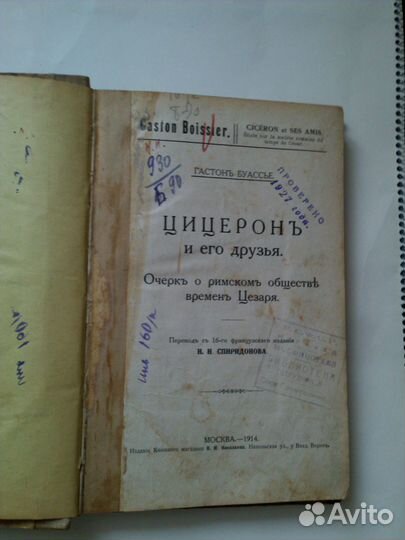 Gaston Boissier.
CICÉRON et SES AMIS.
Étude sur la société romaine du
temps de César.
930
Б 90
ГАСТОНЪ БУАССЬЕ.
ПРОВЕРЕНО
1927 года.
ЦИЦЕРОНЪ
и его друзья.
Очеркъ о римскомъ обществѣ
временъ Цезаря.
Переводъ съ 16-го французскаго изданія
Н. Н. СПИРИДОНОВА
инв 160/а
МОСКВА.—1914.
Изданіе Книжнаго магазина
Никольская ул., у Влад. Воротъ.
Avito